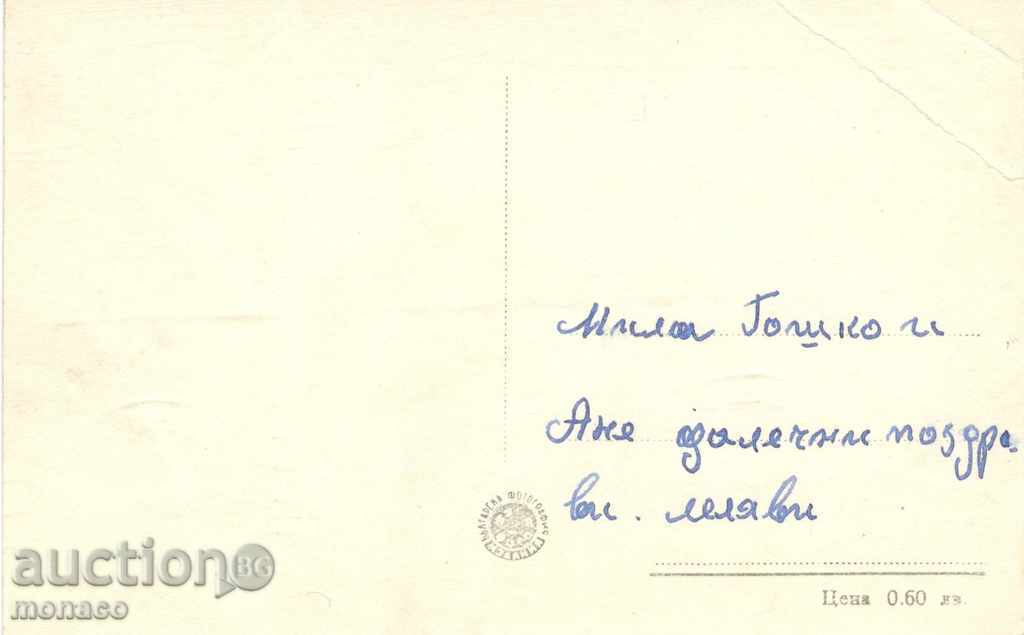 Мила Гошко и
Ане далечни поздра
ви.
БЪЛГАРСКА ФОТОГРАФИЯ
Цена 0.60 лв.
auction BG
monaco